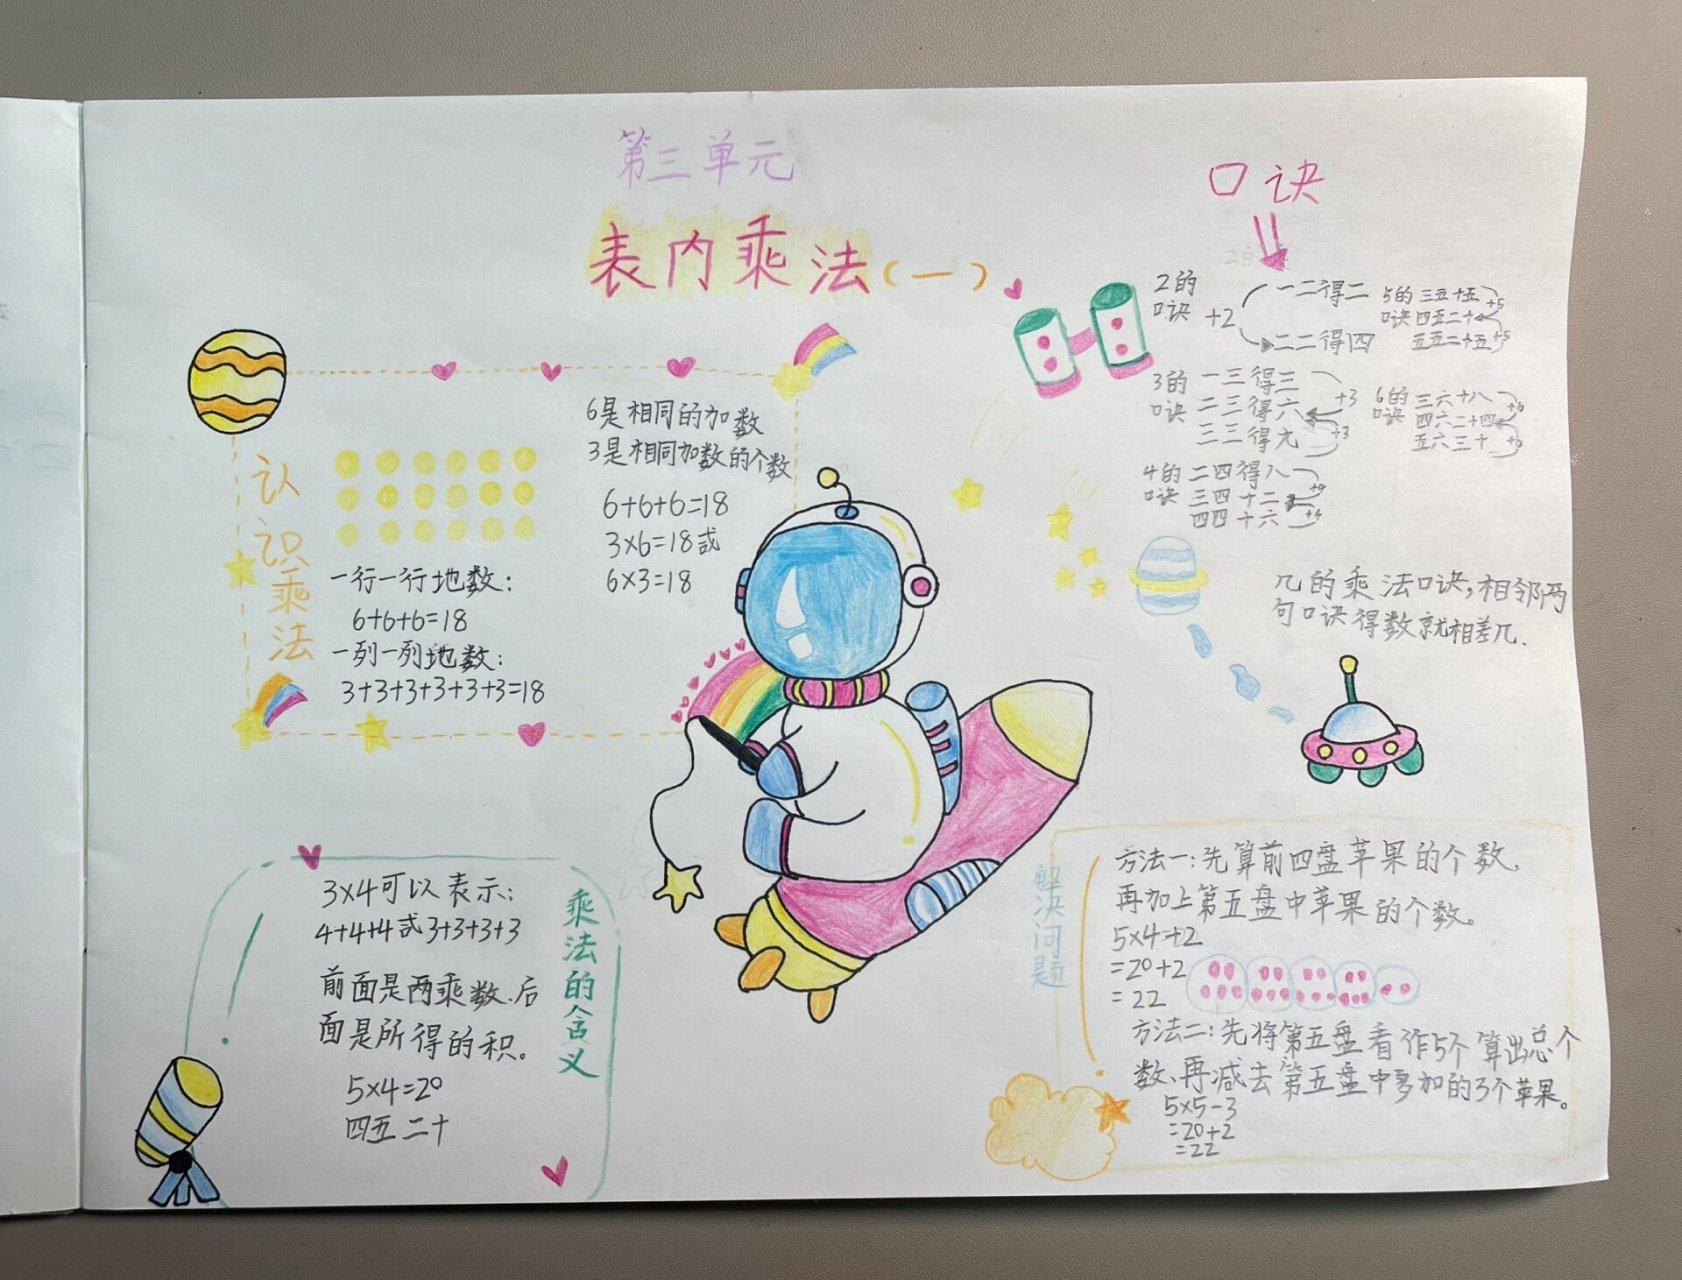 第三单元
表内乘法(一)
认识乘法
一行一行地数:
6+6+6=18
一列一列地数:
3+3+3+3+3+3=18
6是相同的加数
3是相同加数的个数
6+6+6=18
3×6=18或
6×3=18
口诀
2的
口诀
+2
一二得二
二二得四
3的
口诀
一三得三
二三得六
三三得九
+3
+3
4的
口诀
二四得八
三四十二
四四十六
+4
+4
5的
口诀
三五十五
四五二十
五五二十五
+5
+5
6的
口诀
三六十八
四六二十四
五六三十
+6
几的乘法口诀,相邻两
句口诀得数就相差几.
乘法的含义
3×4可以表示:
4+4+4或3+3+3+3
前面是两乘数、后
面是所得的积。
5×4=20
四五二十
解决问题
方法一:先算前四盘苹果的个数、
再加上第五盘中苹果的个数。
5×4+2
=20+2
=22
方法二:先将第五盘看作5个算出总个
数、再减去第五盘中多加的3个苹果。
5×5-3
=20+2
=22